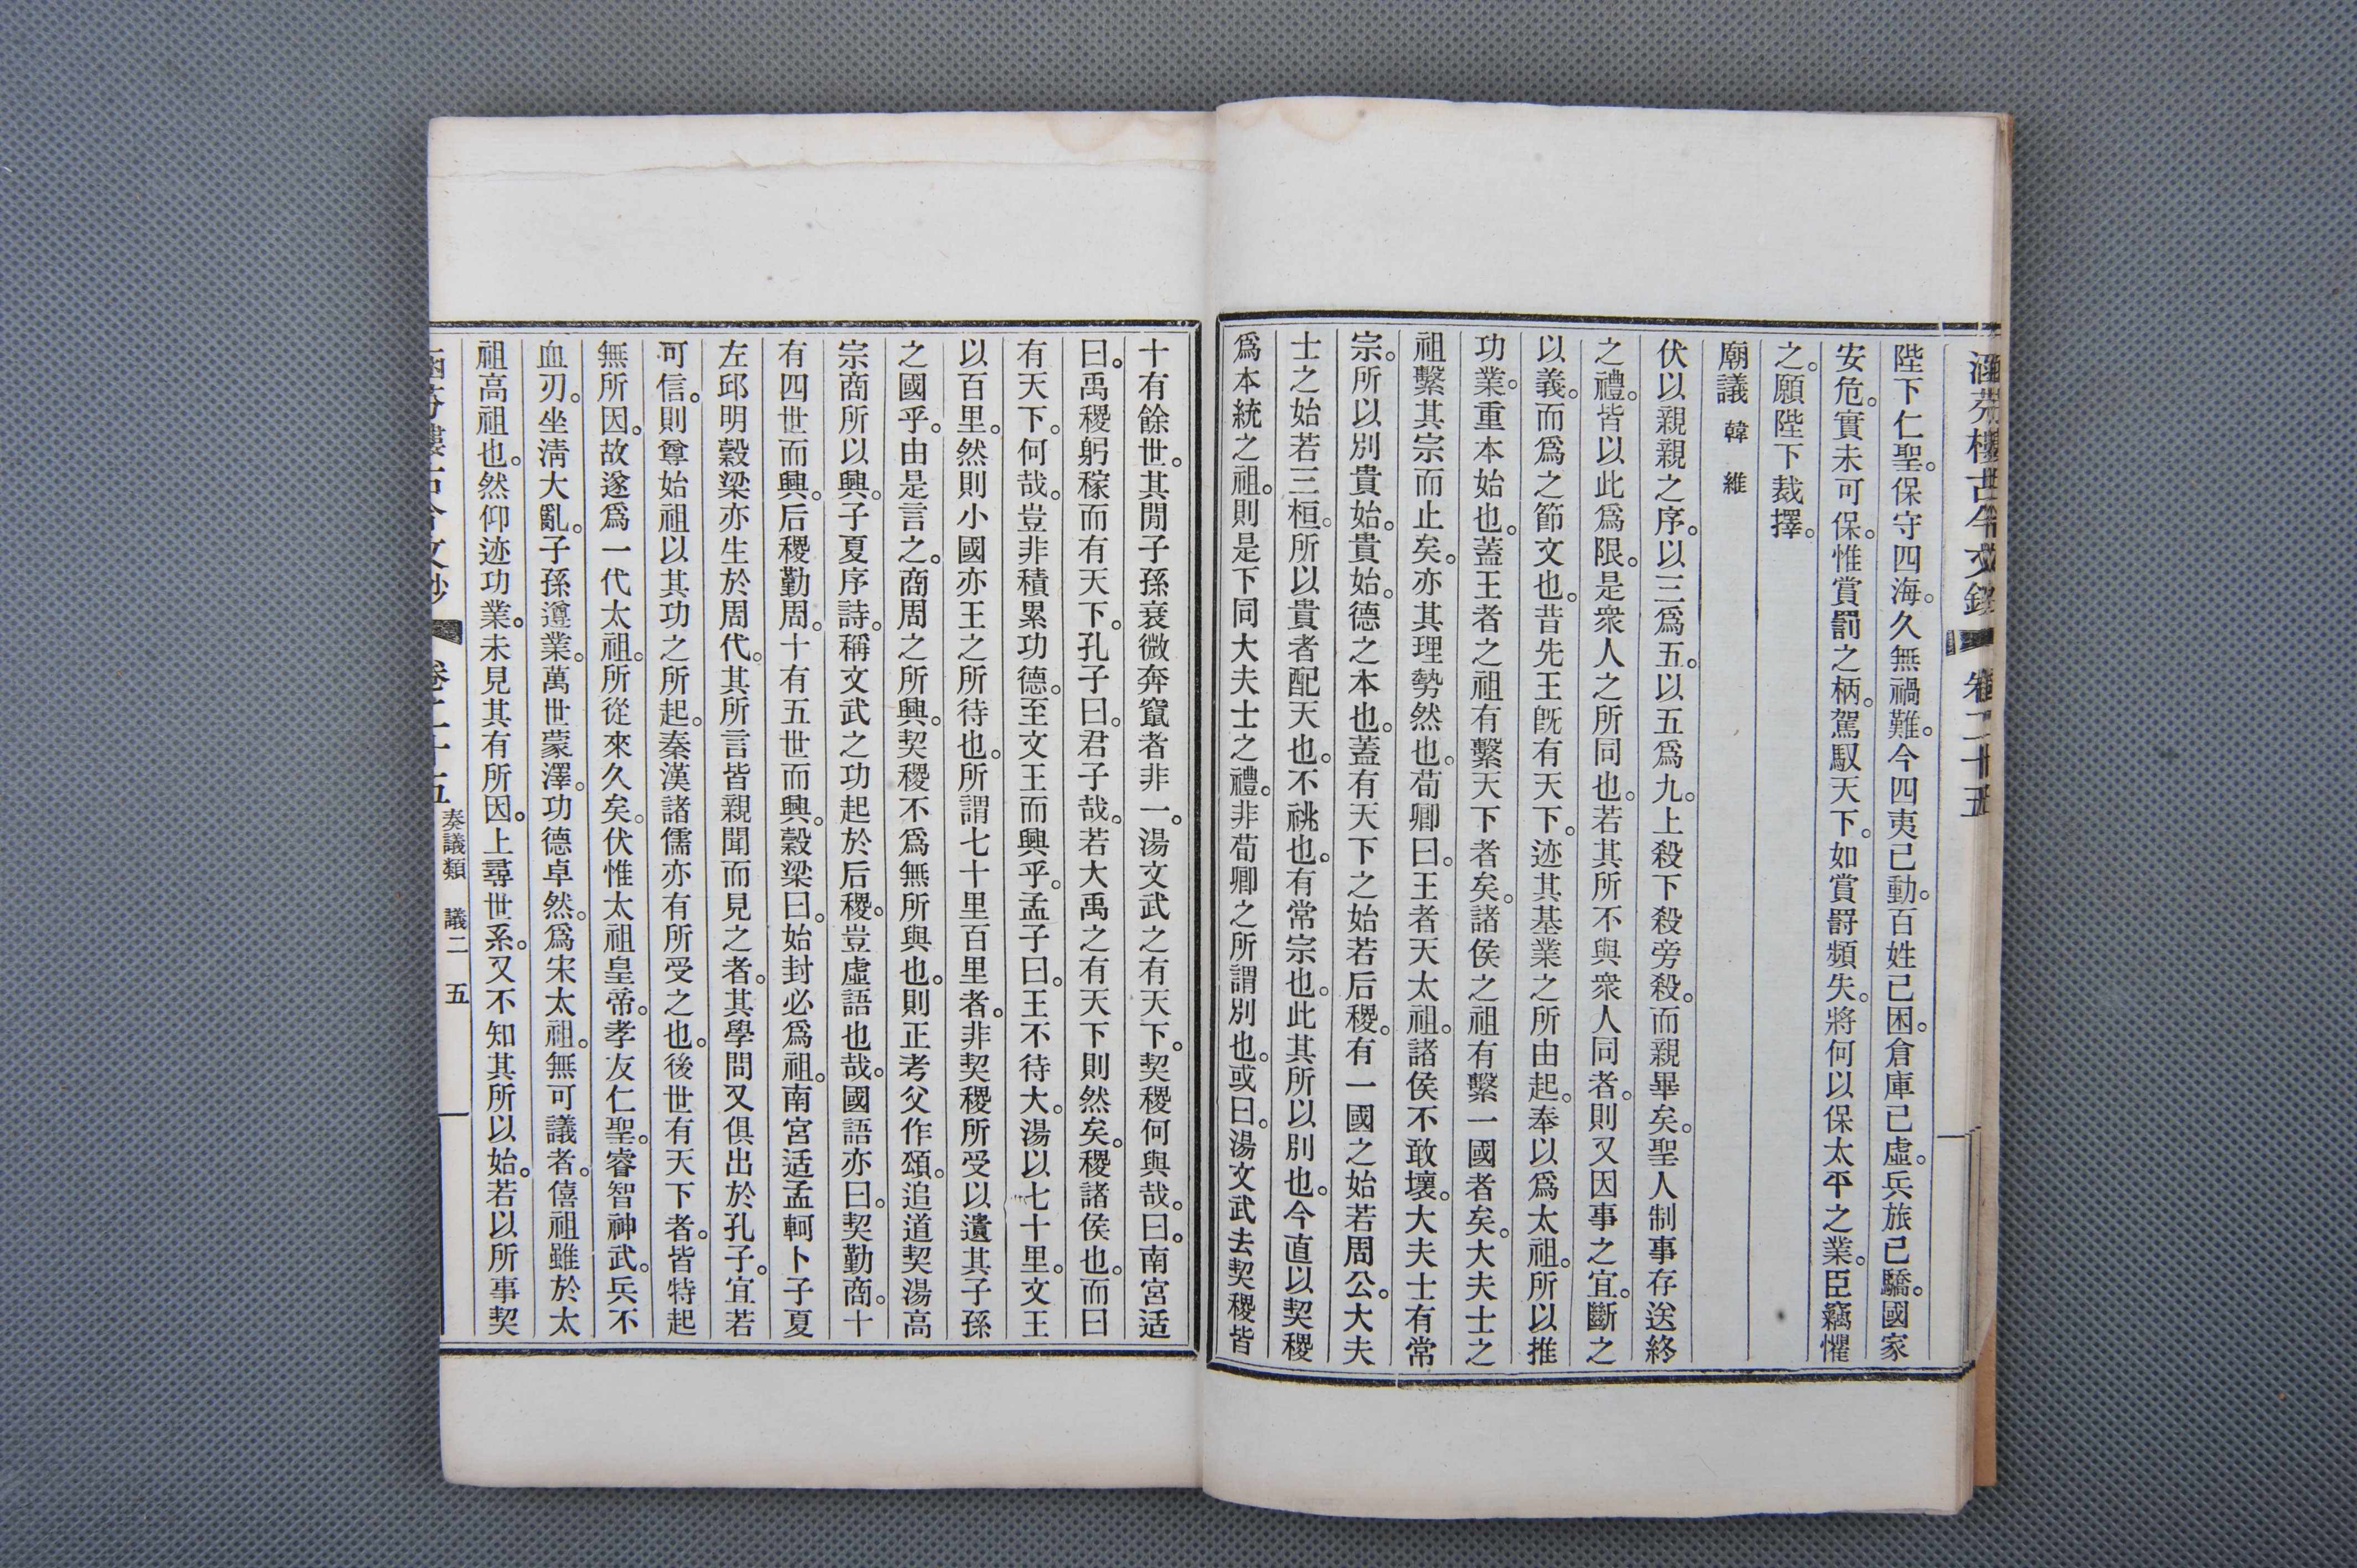 涵芬樓古今文鈔 卷二十五
陛下仁聖。保守四海。久無禍難。今四夷已動。百姓已困。倉庫已虛。兵旅已驕。國家
安危。實未可保。惟賞罰之柄。駕馭天下。如賞罸頻失。將何以保太平之業。臣竊懼
之。願陛下裁擇。
廟議 韓維
伏以親親之序。以三爲五。以五爲九。上殺下殺旁殺。而親畢矣。聖人制事存送終
之禮。皆以此爲限。是衆人之所同也。若其所不與衆人同者。則又因事之宜。斷之
以義。而爲之節文也。昔先王旣有天下。迹其基業之所由起。奉以爲太祖。所以推
功業。重本始也。蓋王者之祖有繫天下者矣。諸侯之祖有繫一國者矣。大夫士之
祖繫其宗而止矣。亦其理勢然也。荀卿曰。王者天太祖。諸侯不敢壞。大夫士有常
宗。所以別貴始。貴始。德之本也。蓋有天下之始若后稷。有一國之始若周公。大夫
士之始若三桓。所以貴者配天也。不祧也。有常宗也。此其所以別也。今直以契稷
爲本統之祖。則是下同大夫士之禮。非荀卿之所謂別也。或曰。湯文武去契稷皆
十有餘世。其閒子孫衰微奔竄者非一。湯文武之有天下。契稷何與哉。曰。南宮适
曰。禹稷躬稼而有天下。孔子曰。君子哉。若大禹之有天下則然矣。稷諸侯也。而曰
有天下。何哉。豈非積累功德。至文王而興乎。孟子曰。王不待大。湯以七十里。文王
以百里。然則小國亦王之所待也。所謂七十里百里者。非契稷所受以遺其子孫
之國乎。由是言之。商周之所興。契稷不爲無所與也。則正考父作頌。追道契湯高
宗商所以興。子夏序詩。稱文武之功起於后稷。豈虛語也哉。國語亦曰。契勤商。十
有四世而興。后稷勤周。十有五世而興。穀梁曰。始封必爲祖。南宮适孟軻卜子夏
左邱明穀梁亦生於周代。其所言皆親聞而見之者。其學問又俱出於孔子。宜若
可信。則尊始祖以其功之所起。秦漢諸儒亦有所受之也。後世有天下者。皆特起
無所因。故遂爲一代太祖。所從來久矣。伏惟太祖皇帝。孝友仁聖。睿智神武。兵不
血刃。坐淸大亂。子孫遵業。萬世蒙澤。功德卓然。爲宋太祖。無可議者。僖祖雖於太
祖高祖也。然仰迹功業。未見其有所因。上尋世系。又不知其所以始。若以所事契
涵芬樓古今文鈔 卷二十五 奏議類 議二 五